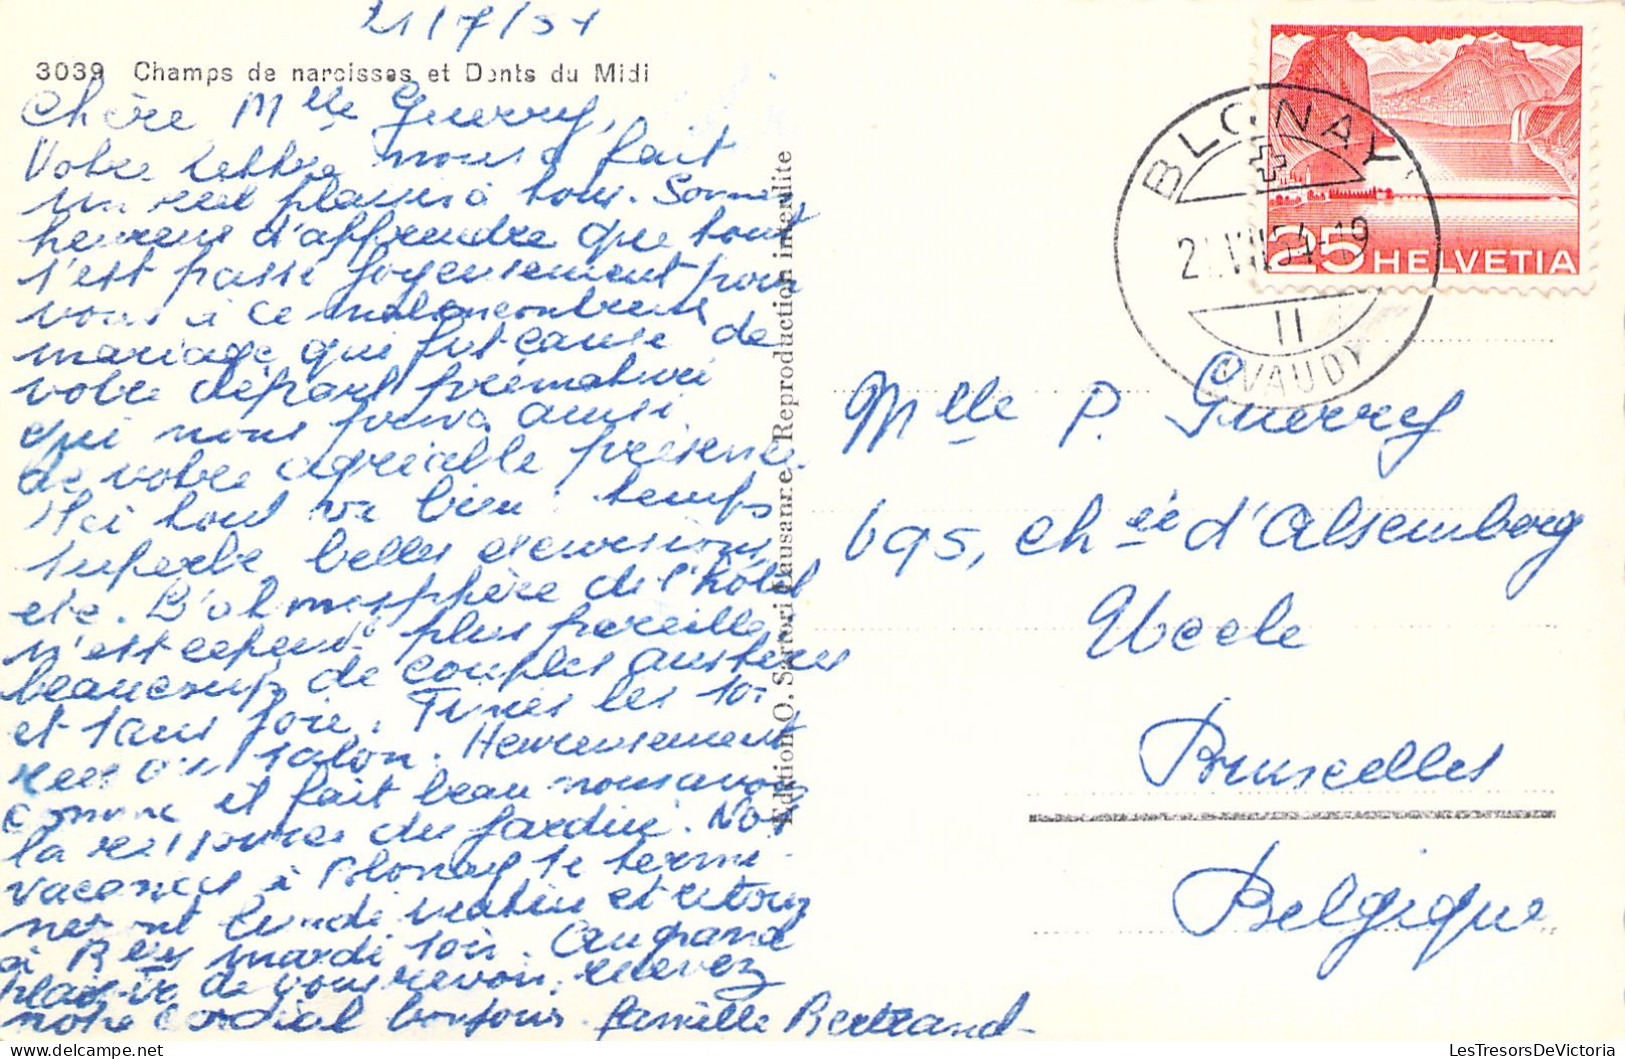 21/7/54
3039 Champs de narcisses et Dents du Midi
Chère Mlle Guerrey,
Votre lettre nous a fait
un réel plaisir à tous. Sommes
heureux d'apprendre que tout
s'est passé joyeusement pour
vous à ce malencontreux
mariage qui fut cause de
votre départ prématuré
qui nous priva ainsi
de votre agréable présence.
Ici tout va bien : temps
superbe belles excursions,
etc. L'atmosphère de l'hôtel
n'est cepend^t plus pareille,
beaucoup de couples austères
et sans joie. Finies les soi
rées au salon. Heureusement
comme il fait beau nous avons
la ressources du jardin. Nos
vacances à Blonay se termi-
neront lundi matin et retour
à Blles mardi soir. Au grand
plaisir de vous revoir, recevez
notre cordial bonjour. famille Bertrand
Edition O. Sartori Lausanne Reproduction interdite
BLONAY
21.VII.54-19
II
(VAUD)
25 HELVETIA
Mlle P. Guerrey
695, chée d'Alsemberg
Uccle
Bruxelles
Belgique
LesTresorsDeVictoria